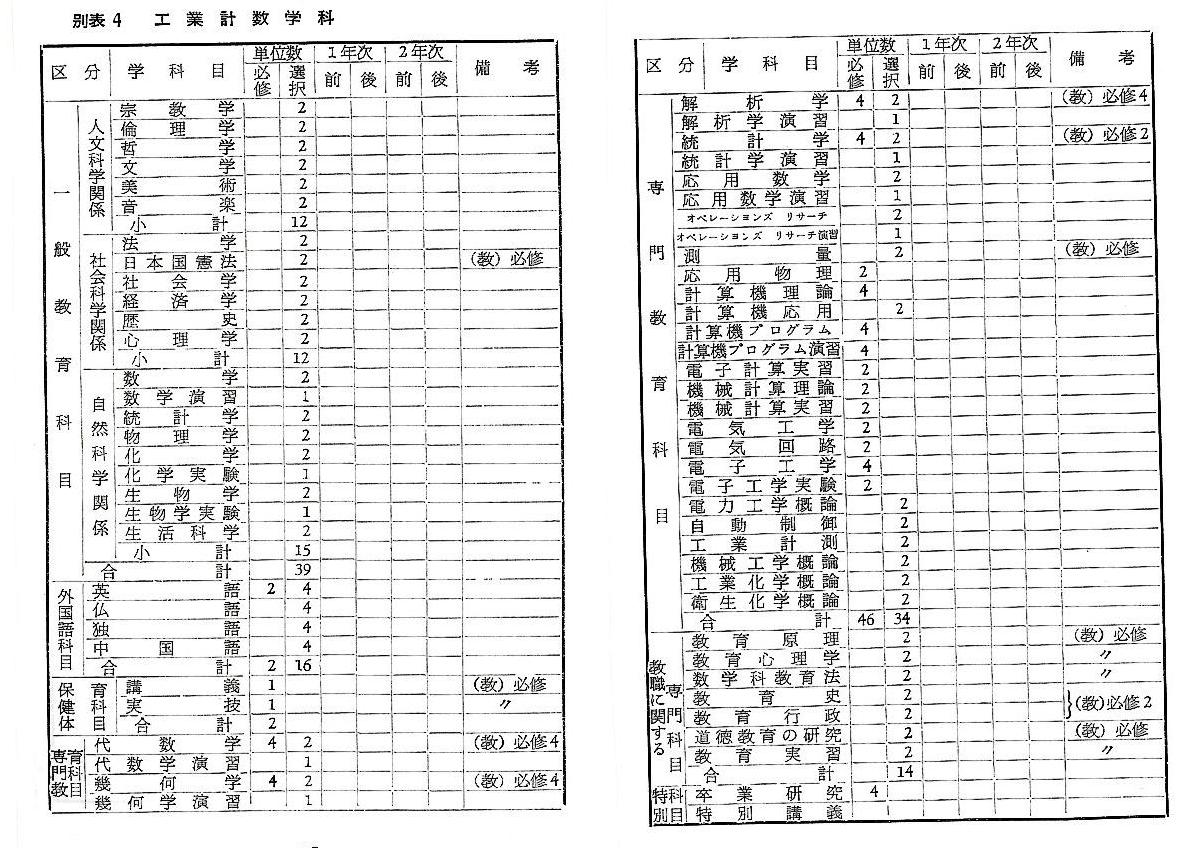 別表4 工業計数学科
区分 学科目 単位数 1年次 2年次 備考
必修 選択 前 後 前 後
一般教育科目
人文科学関係
宗教学 2
倫理学 2
哲学 2
文学 2
美術 2
音楽 2
小計 12
社会科学関係
法学 2
日本国憲法 2 (教)必修
社会学 2
経済学 2
歴史 2
心理学 2
小計 12
自然科学関係
数学 2
数学演習 1
統計学 2
物理学 2
化学 2
化学実験 1
生物学 2
生物学実験 1
生活科学 2
小計 15
合計 39
外国語科目
英語 2 4
仏語 4
独語 4
中国語 4
合計 2 16
保健体育科目
講義 1 (教)必修
実技 1 〃
合計 2
専門教育科目
代数学 4 2 (教)必修4
代数学演習 1
幾何学 4 2 (教)必修4
幾何学演習 1
区分 学科目 単位数 1年次 2年次 備考
必修 選択 前 後 前 後
専門教育科目
解析学 4 2 (教)必修4
解析学演習 1
統計学 4 2 (教)必修2
統計学演習 1
応用数学 2
応用数学演習 1
オペレーションズ リサーチ 2
オペレーションズ リサーチ演習 1
測量 2 (教)必修
応用物理 2
計算機理論 4
計算機応用 2
計算機プログラム 4
計算機プログラム演習 4
電子計算実習 2
機械計算理論 2
機械計算実習 2
電気工学 2
電気回路 2
電子工学 4
電子工学実験 2
電力工学概論 2
自動制御 2
工業計測 2
機械工学概論 2
工業化学概論 2
衛生化学概論 2
合計 46 34
教職に関する専門科目
教育原理 2 (教)必修
教育心理学 2 〃
数学科教育法 2 〃
教育史 2
教育行政 2 }(教)必修2
道徳教育の研究 2 (教)必修
教育実習 2 〃
合計 14
特別科目
卒業研究 4
特別講義